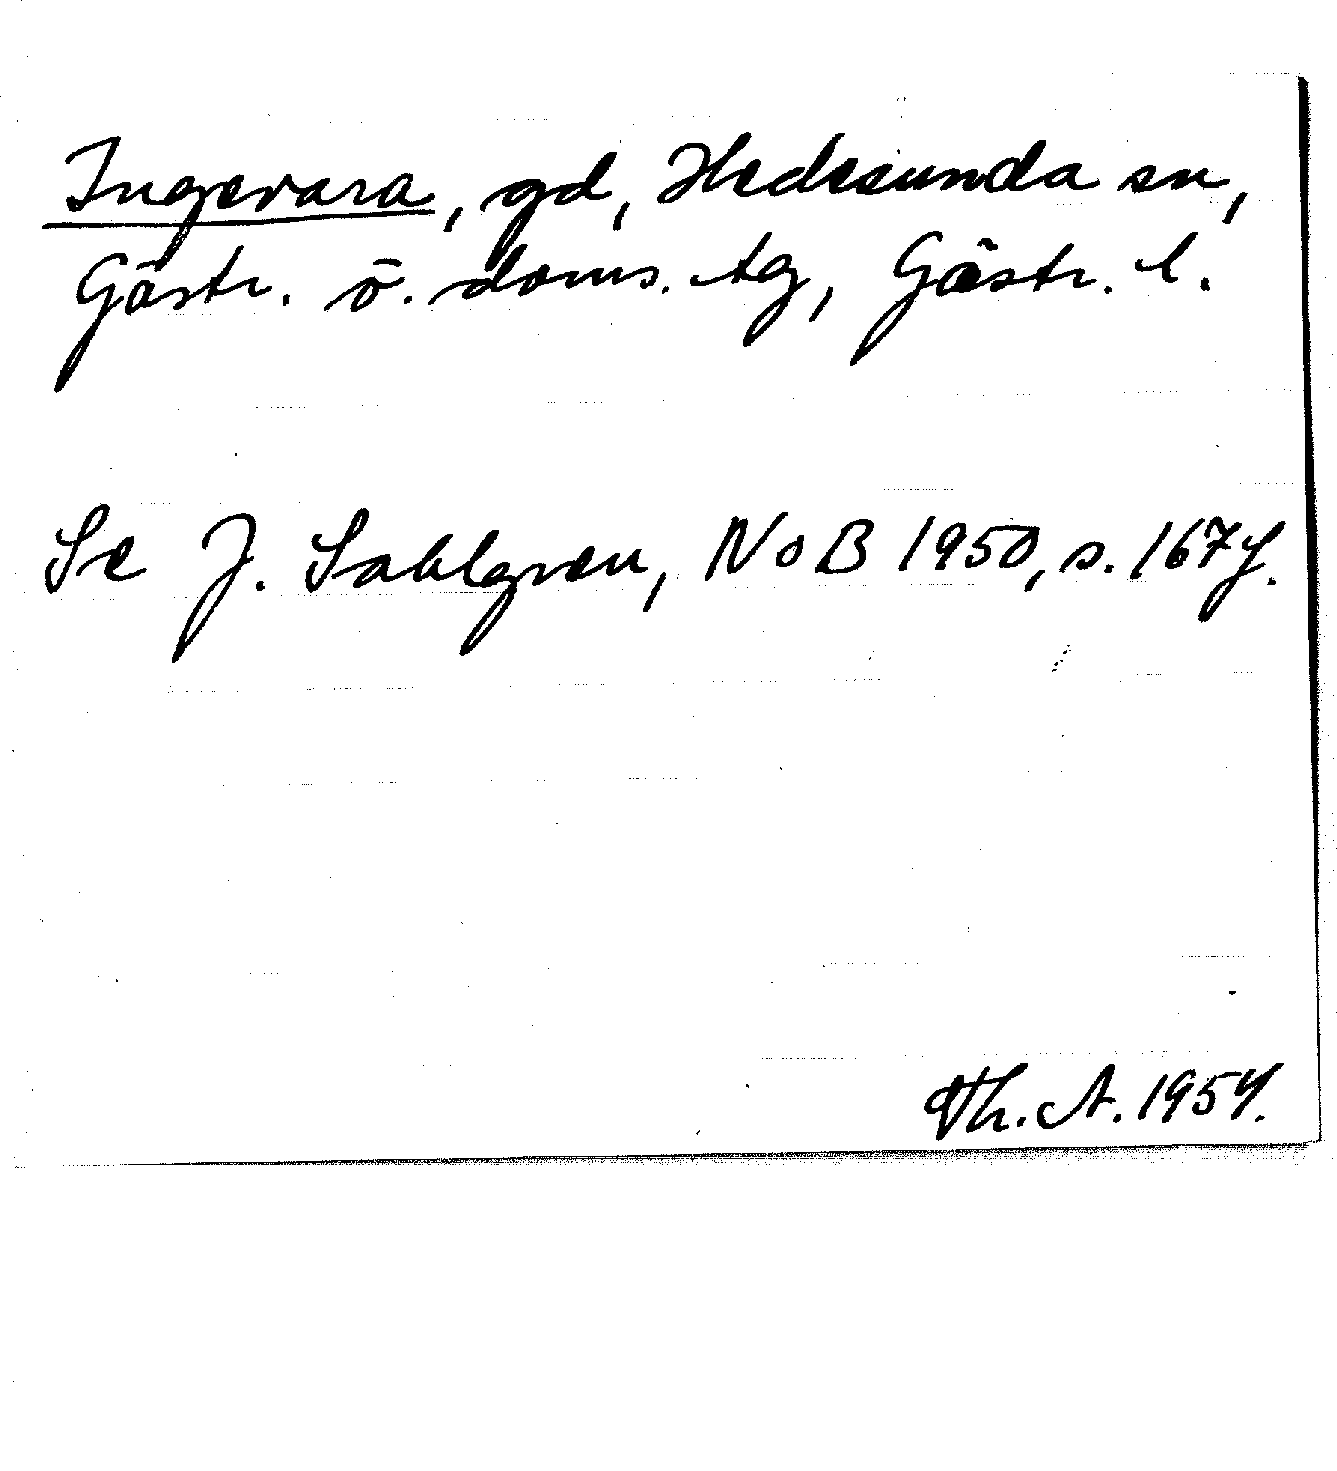 Ingevara, gd, Hedesunda sn,
Gästr. ö. doms. tg, Gästr. l.
Se J. Sahlgren, NoB 1950, s. 167f.
Th. A. 1954.